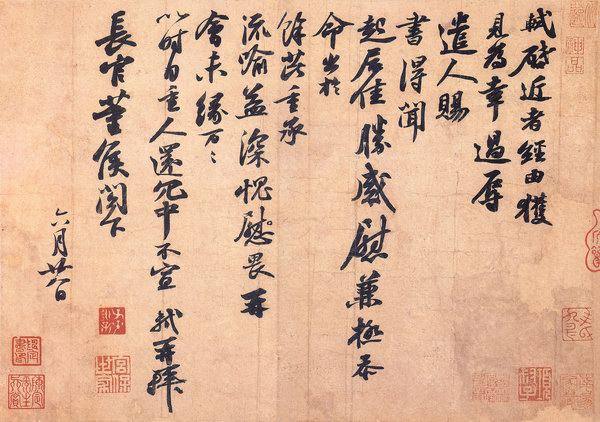 軾啓近者經由獲
見為幸過辱
遣人賜
書得聞
起居佳勝感慰兼極忝
命出於
餘芘重承
流喻益深愧慰畏再
會未緣万々
以時自重人還冗中不宣 軾再拜
長官董侯閣下
六月廿八日